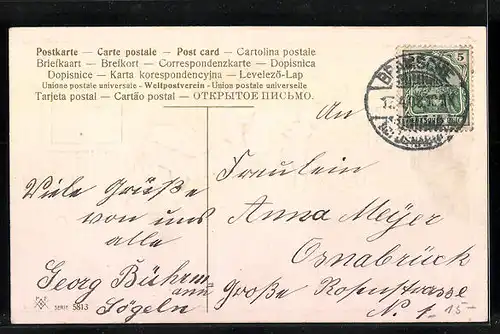 Postkarte — Carte postale — Post card — Cartolina postale
Briefkaart — Brefkort — Correspondenzkarte — Dopisnica
Dopisnice — Karta korespondencyjna — Levelező-Lap
Unione postale universale - Weltpostverein - Union postale universelle
Tarjeta postal — Cartão postal — ОТКРЫТОЕ ПИСЬМО.
5
An
Fraulein
Anna Meyer
Osnabrück
Große Rosenstrasse
N. 1
15-
Viele Grüße
von uns
alle
Georg Bührmann
Sögeln
SERIE 5813